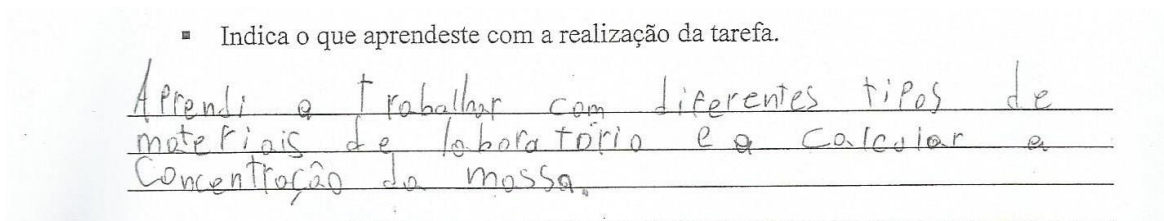 ▪ Indica o que aprendeste com a realização da tarefa.
Aprendi a trabalhar com diferentes tipos de
materiais de laboratório e a calcular a
Concentração da massa.